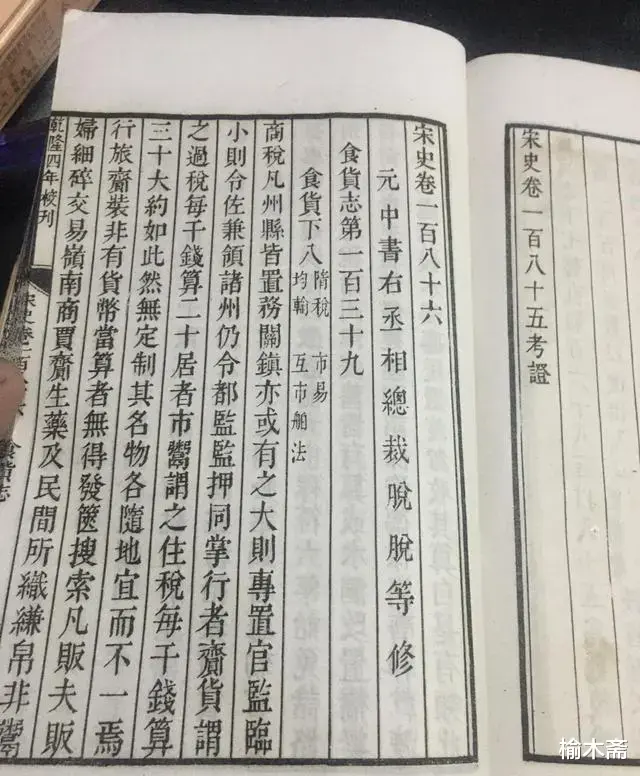 宋史卷一百八十五考證
宋史卷一百八十六
元中書右丞相總裁脫脫等修
食貨志第一百三十九
食貨下八
稅 市易
均輸 互市舶法
商稅凡州縣皆置務關鎮亦或有之大則專置官監臨
小則令佐兼領諸州仍令都監監押同掌行者齎貨謂
之過稅每千錢算二十居者市鬻謂之住稅每千錢算
三十大約如此然無定制其名物各隨地宜而不一焉
行旅齎裝非有貨幣當算者無得發篋搜索凡販夫販
婦細碎交易嶺南商賈齎生藥及民間所織縑帛非鬻
乾隆四年校刊
宋史卷一百 食貨志
榆木斋